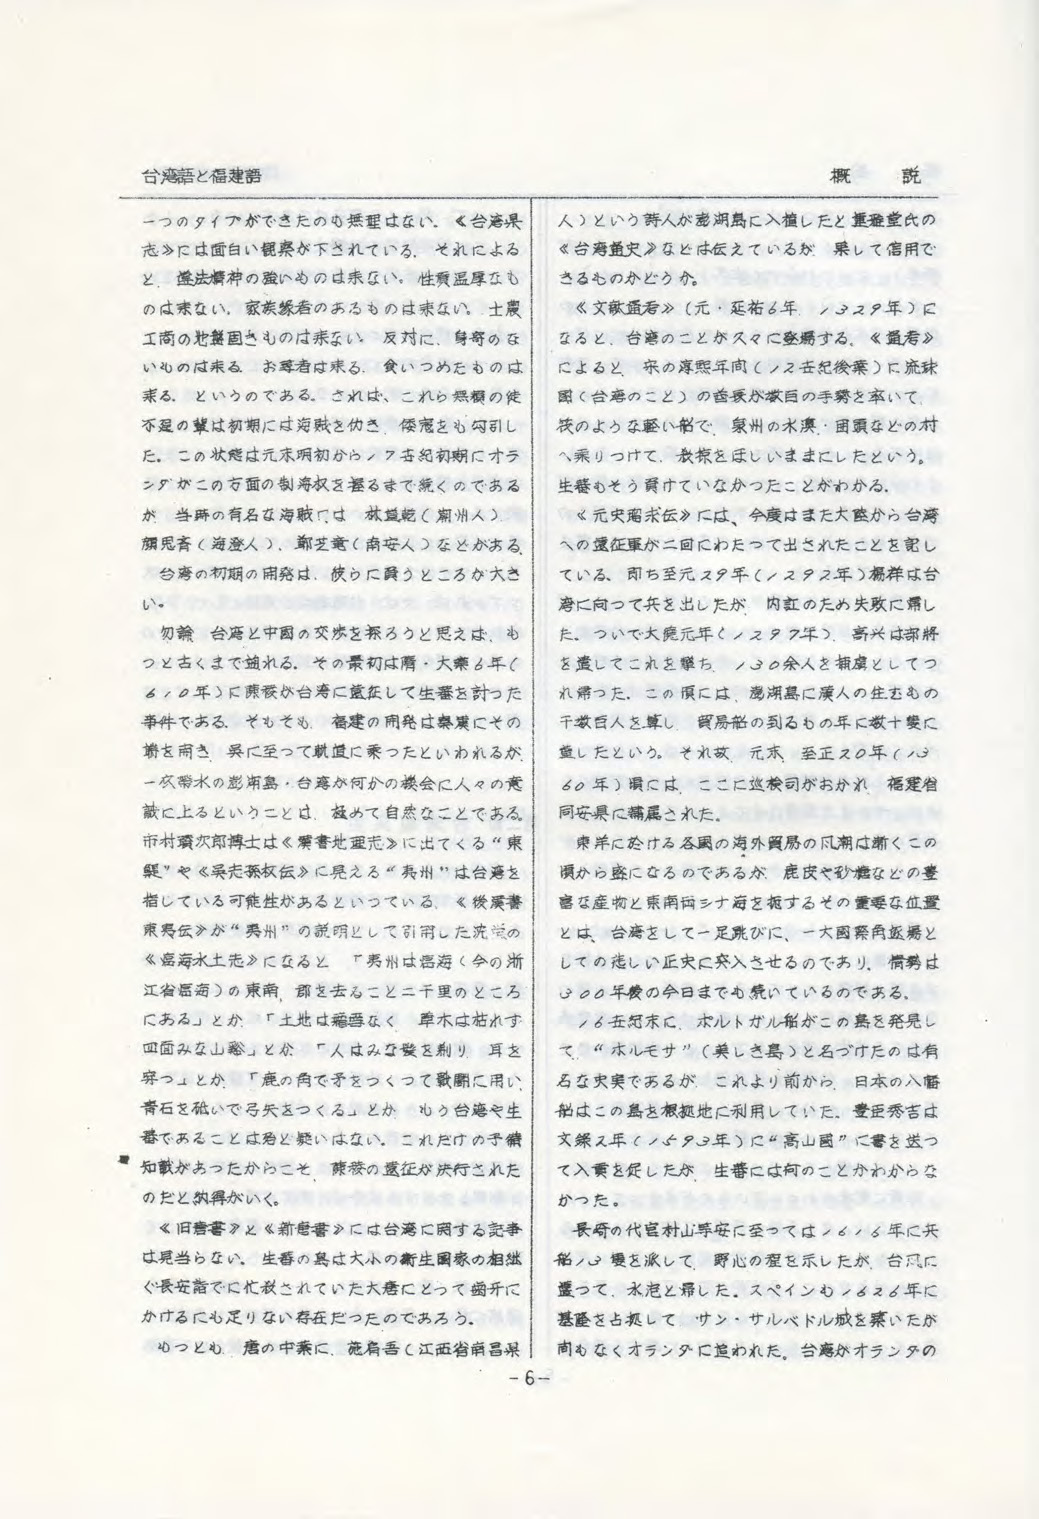 台湾語と福建語
概　説
一つのタイプができたのも無理はない。《台湾県
志》には面白い観察が下されている。それによる
と、遵法精神の強いものは来ない。性質温厚なも
のは来ない。家族係者のあるものは来ない。士農
工商の地盤固きものは来ない。反対に、身寄のな
いものは来る。お尋者は来る。食いつめたものは
来る。というのである。されば、これら無頼の徒
不逞の輩は初期には海賊を仂き、倭寇をも勾引し
た。この状態は元末明初から17世紀初期にオラ
ンダがこの方面の制海权を握るまで続くのである
が、当時の有名な海賊には　林道乾（潮州人）、
顔思斉（海澄人）、鄭芝竜（南安人）などがある。
台湾の初期の開発は、彼らに負うところが大き
い。
勿論　台湾と中国の交渉を探ろうと思えば、も
つと古くまで遡れる。その最初は隋・大業6年（
610年）に陳稜が台湾に遠征して生蕃を討つた
事件である。そもそも、福建の開発は秦漢にその
端を開き、呉に至って軌道に乗つたといわれるが、
一衣帯水の澎湖島・台湾が何かの機会に人々の意
識に上るということは、極めて自然なことである。
市村瓚次郎博士は《漢書地理志》に出てくる“東
鯷”や《呉志孫权伝》に見える“夷州”は台湾を
指している可能性があるといつている。《後漢書
東夷伝》が“夷州”の説明として引用した沈瑩の
《臨海水土志》になると、「夷州は臨海（今の浙
江省臨海）の東南、郡を去ること二千里のところ
にある」とか、「土地は霜雪なく、草木は枯れず
四面みな山谿」とか、「人はみな髪を剃り、耳を
穿つ」とか、「鹿の角で矛をつくつて戦闘に用い、
青石を砥いで弓矢をつくる」とか、もう台湾や生
蕃であることは殆ど疑いはない。これだけの予備
知識があつたからこそ、陳稜の遠征が決行された
のだと納得がいく。
《旧唐書》と《新唐書》には台湾に関する記事
は見当らない。生蕃の島は大小の衛生国家の相継
ぐ長安詣でに忙殺されていた大唐にとって歯牙に
かけるにも足りない存在だつたのであろう。
もつとも、唐の中葉に、施肩吾（江西省南昌県
人）という詩人が澎湖島に入植したと連雅堂氏の
《台湾通史》などは伝えているが、果して信用で
きるものかどうか。
《文献通考》（元・延祐6年、1329年）に
なると、台湾のことが久々に登場する。《通考》
によると、宋の淳熙年間（12世紀後葉）に流球
國（台湾のこと）の酋長が数百の手勢を率いて、
筏のような軽い船で、泉州の水澳・囲頭などの村
へ乗りつけて、殺掠をほしいままにしたという。
生蕃もそう負けていなかつたことがわかる。
《元史瑠求伝》には、今度はまた大陸から台湾
への遠征軍が二回にわたつて出されたことを記し
ている。即ち至元29年（1292年）楊祥は台
湾に向つて兵を出したが、内訌のため失敗に帰し
た。ついで大徳元年（1297年）、高興は部将
を遣してこれを撃ち、130余人を捕虜としてつ
れ帰つた。この頃には、澎湖島に漢人の住むもの
千数百人を算し、貿易船の到るもの年に数十隻に
達したという。それ故、元末、至正20年（13
60年）頃には、ここに巡検司がおかれ、福建省
同安県に隷属された。
東洋に於ける各国の海外貿易の風潮は漸くこの
頃から盛になるのであるが、鹿皮や砂糖などの豊
富な産物と東南両シナ海を扼するその重要な位置
とは、台湾をして一足跳びに、一大國際角逐場と
しての悲しい正史に突入させるのであり、情勢は
300年後の今日までも続いているのである。
16世紀末に、ポルトガル船がこの島を発見し
て、“ホルモサ”（美しき島）と名づけたのは有
名な史実であるが、これより前から、日本の八幡
船はこの島を根拠地に利用していた。豊臣秀吉は
文禄2年（1593年）に“高山國”に書を送つ
て入貢を促したが、生蕃には何のことかわからな
かつた。
長崎の代官村山等安に至っては1616年に兵
船13隻を派して、野心の程を示したが、台風に
遭つて、水泡と帰した。スペインも1626年に
基隆を占拠して、サン・サルバドル城を築いたが
間もなくオランダに追われた。台湾がオランダの
-6-